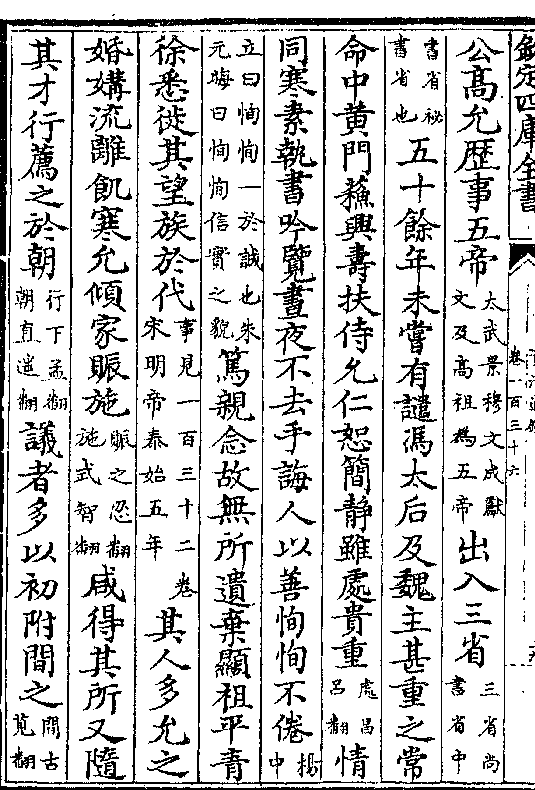 欽定四庫全書
卷一百三十六
公高允歴事五帝太武景穆文成獻文及高祖為五帝出入三省三省尚書省中
書省祕書省也五十餘年未嘗有譴馮太后及魏主甚重之常
命中黄門蘓興壽扶侍允仁恕簡静雖處貴重處昌吕翻情
同寒素執書吟覽晝夜不去手誨人以善恂恂不倦楊中
立曰恂恂一於誠也朱元晦曰恂恂信實之貌篤親念故無所遺棄顯祖平青
徐悉徙其望族於代事見一百三十二卷宋明帝泰始五年其人多允之
婚媾流離飢寒允傾家賑施賑之忍翻施式智翻咸得其所又隨
其才行薦之於朝行下孟翻朝直遥翻議者多以初附間之間古莧翻